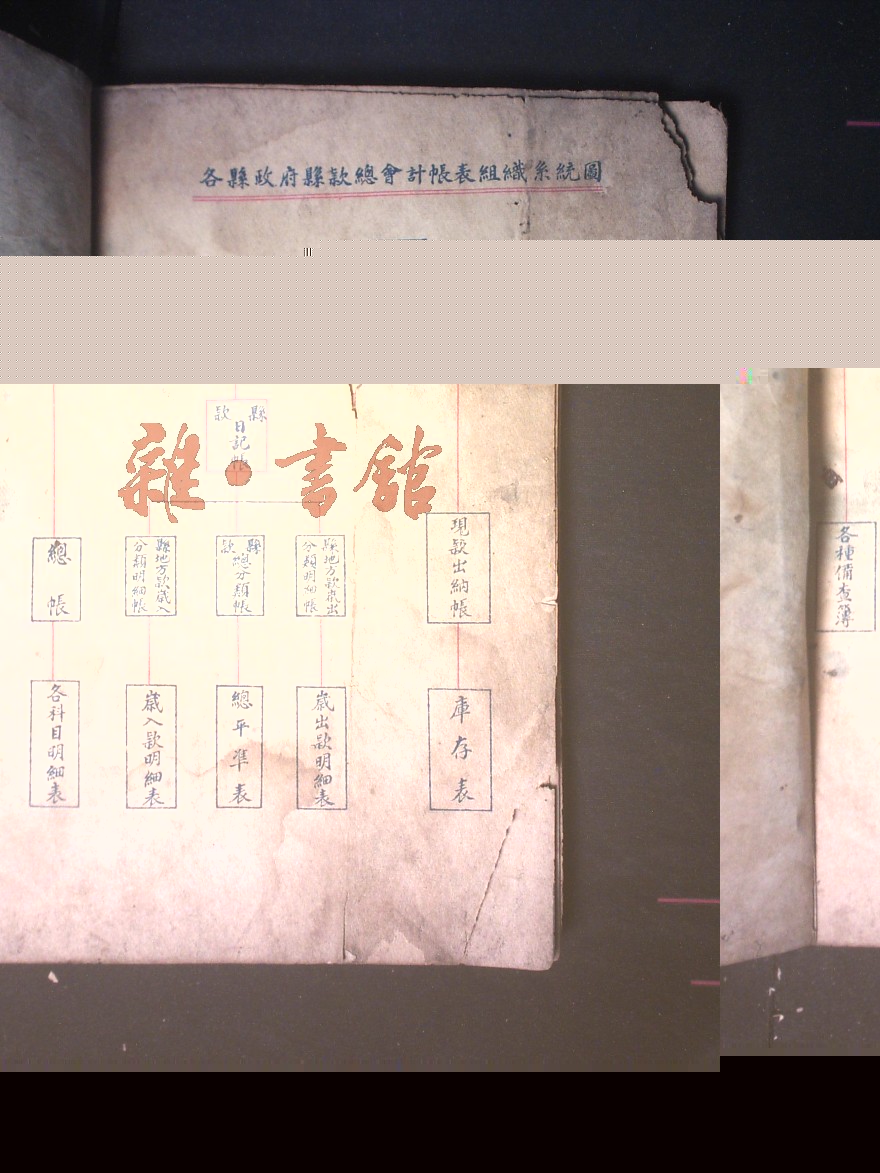 各縣政府縣款總會計帳表組織系統圖
縣款
日記帳
雜·書館
現款出納帳
縣地方款歲出
分類明細帳
縣款
總分類帳
縣地方款歲入
分類明細帳
總帳
各種備查簿
庫存表
歲出款明細表
總平準表
歲入款明細表
各科目明細表